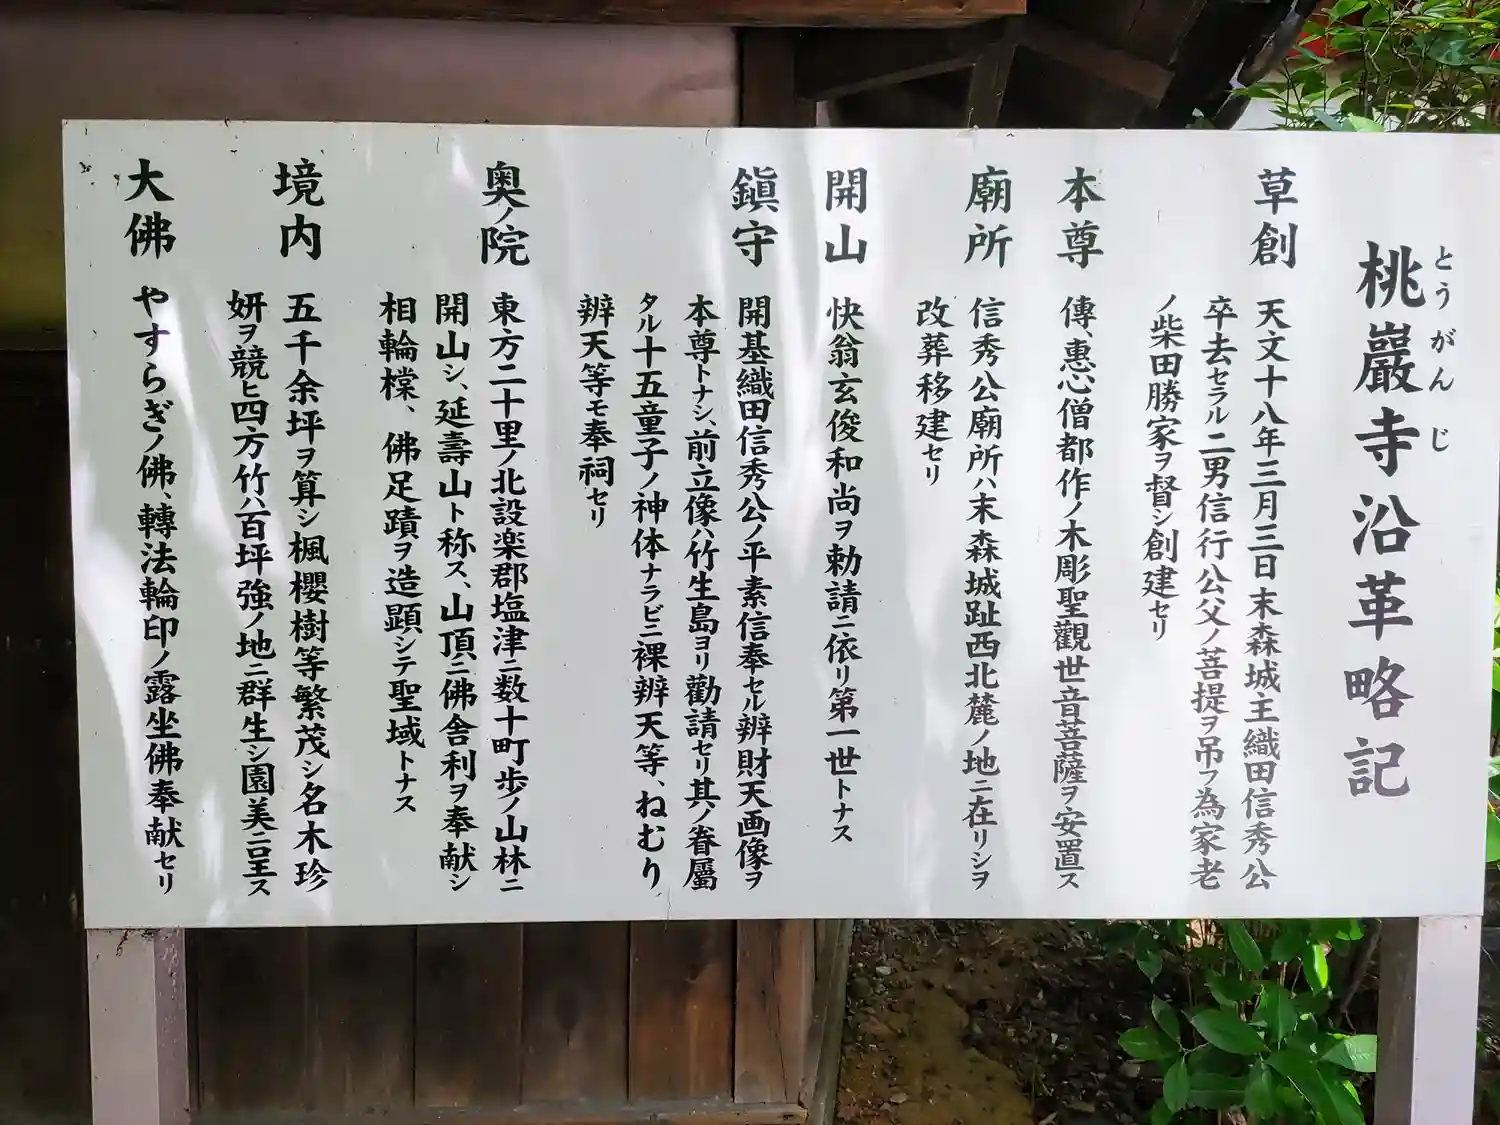 桃巖寺沿革略記
とうがんじ
草創 天文十八年三月三日末森城主織田信秀公
卒去セラル二男信行公父ノ菩提ヲ吊フ為家老
ノ柴田勝家ヲ督シ創建セリ
本尊 傳、惠心僧都作ノ木彫聖觀世音菩薩ヲ安置ス
廟所 信秀公廟所ハ末森城趾西北麓ノ地ニ在リシヲ
改葬移建セリ
開山 快翁玄俊和尚ヲ勅請ニ依リ第一世トナス
鎭守 開基織田信秀公ノ平素信奉セル辨財天画像ヲ
本尊トナシ、前立像ハ竹生島ヨリ勸請セリ其ノ眷屬
タル十五童子ノ神体ナラビニ裸辨天等、ねむり
辨天等モ奉祠セリ
奥ノ院 東方二十里ノ北設楽郡塩津ニ数十町歩ノ山林ニ
開山シ、延壽山ト称ス、山頂ニ佛舎利ヲ奉献シ
相輪樘、佛足蹟ヲ造顕シテ聖域トナス
境内 五千余坪ヲ算シ楓櫻樹等繁茂シ名木珍
妍ヲ競ヒ四方竹ハ百坪強ノ地ニ群生シ園美ニ呈ス
大佛 やすらぎノ佛、轉法輪印ノ露坐佛奉献セリ